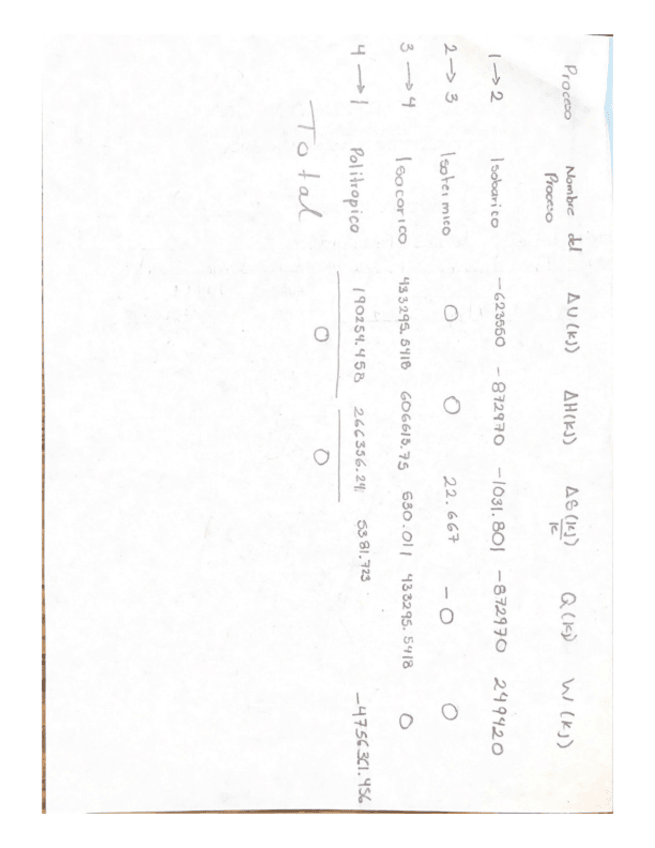 Proceso Nombre del Proceso ΔU(KJ) ΔH(KJ) ΔS(KJ/K) Q(KJ) W(KJ)
1→2 Isobarico -623550 -872970 -1031.801 -872970 249420
2→3 Isotermico 0 0 22.667 -0 0
3→4 Isocorico 433295.5418 606613.75 630.011 433295.5418 0
4→1 Politropico 190254.458 266356.24 5381.723 -4756361.456
Total 0 0